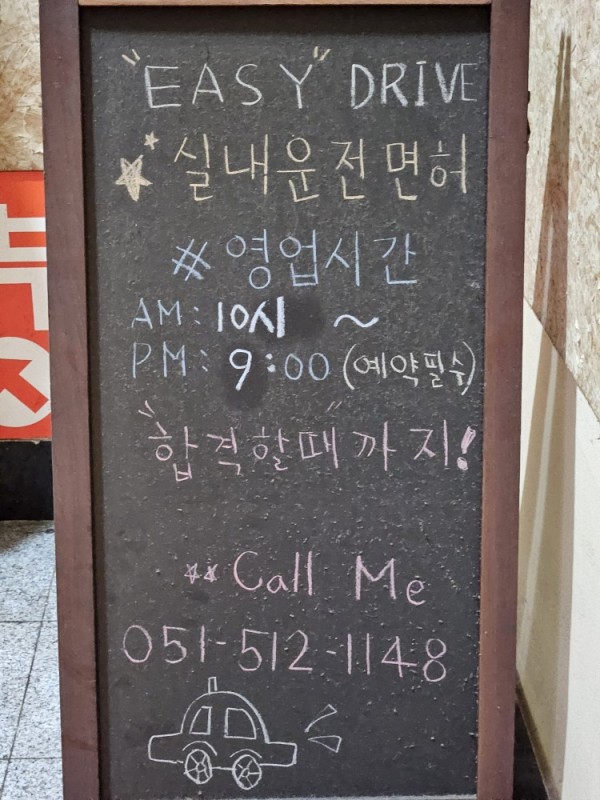 "EASY" DRIVE
실내운전면허
#영업시간
AM: 10시 ~
PM: 9:00 (예약필수)
"합격할때"까지!
Call Me
051-512-1148